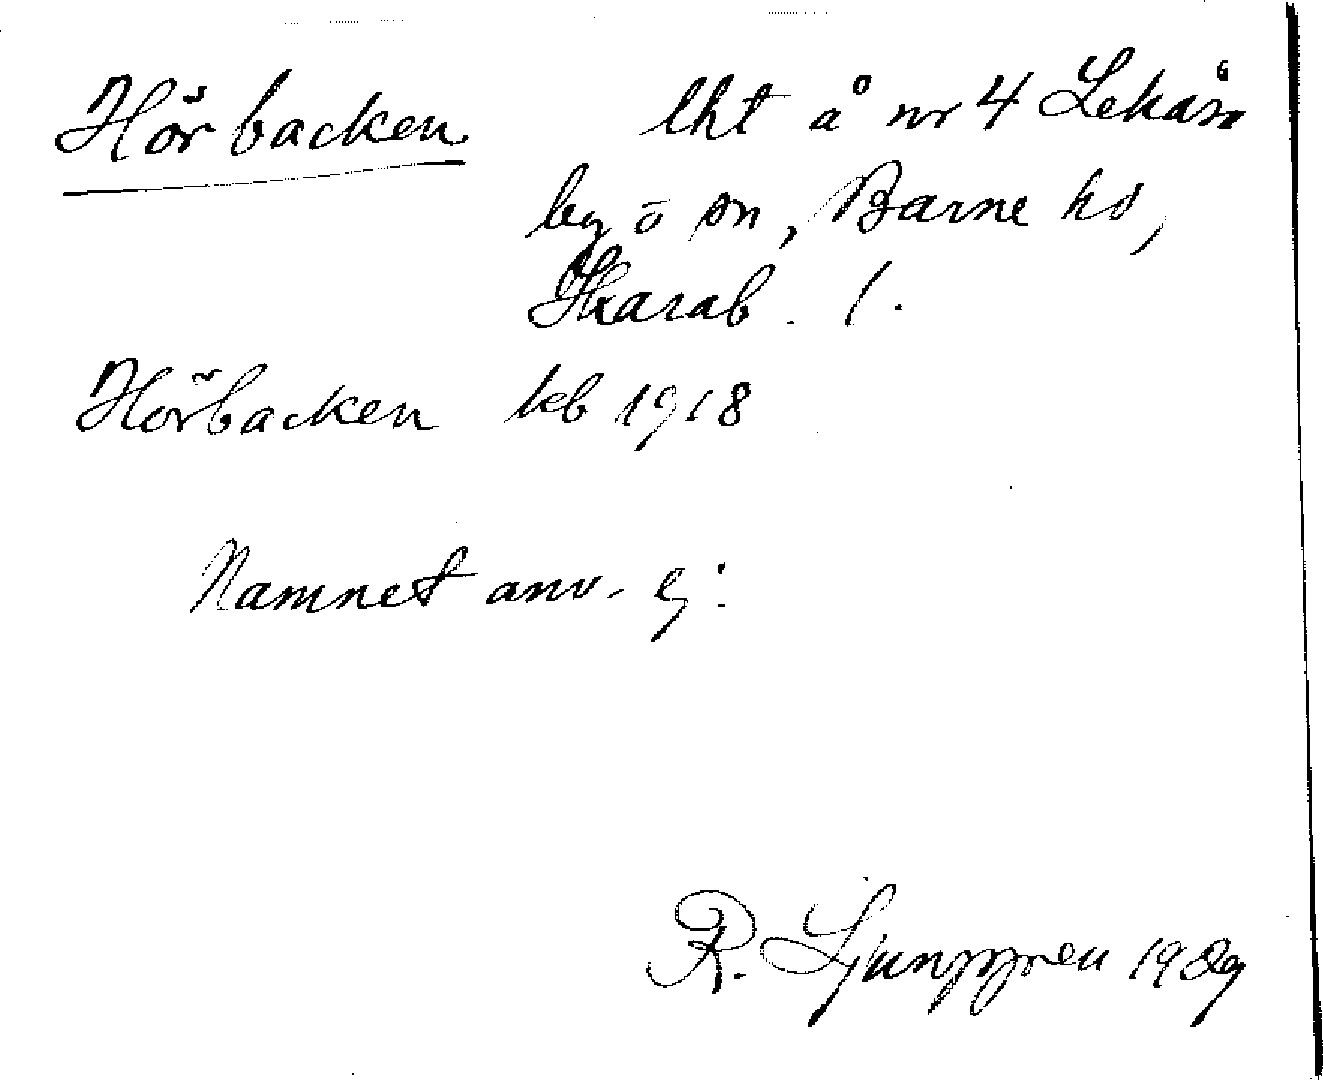 Hörbacken lht å nr 4 Lekåsa
by o sn, Barne hd,
Skarab. l.
Hörbacken kb 1918
Namnet anv. ej.
R. Ljunggren 1929